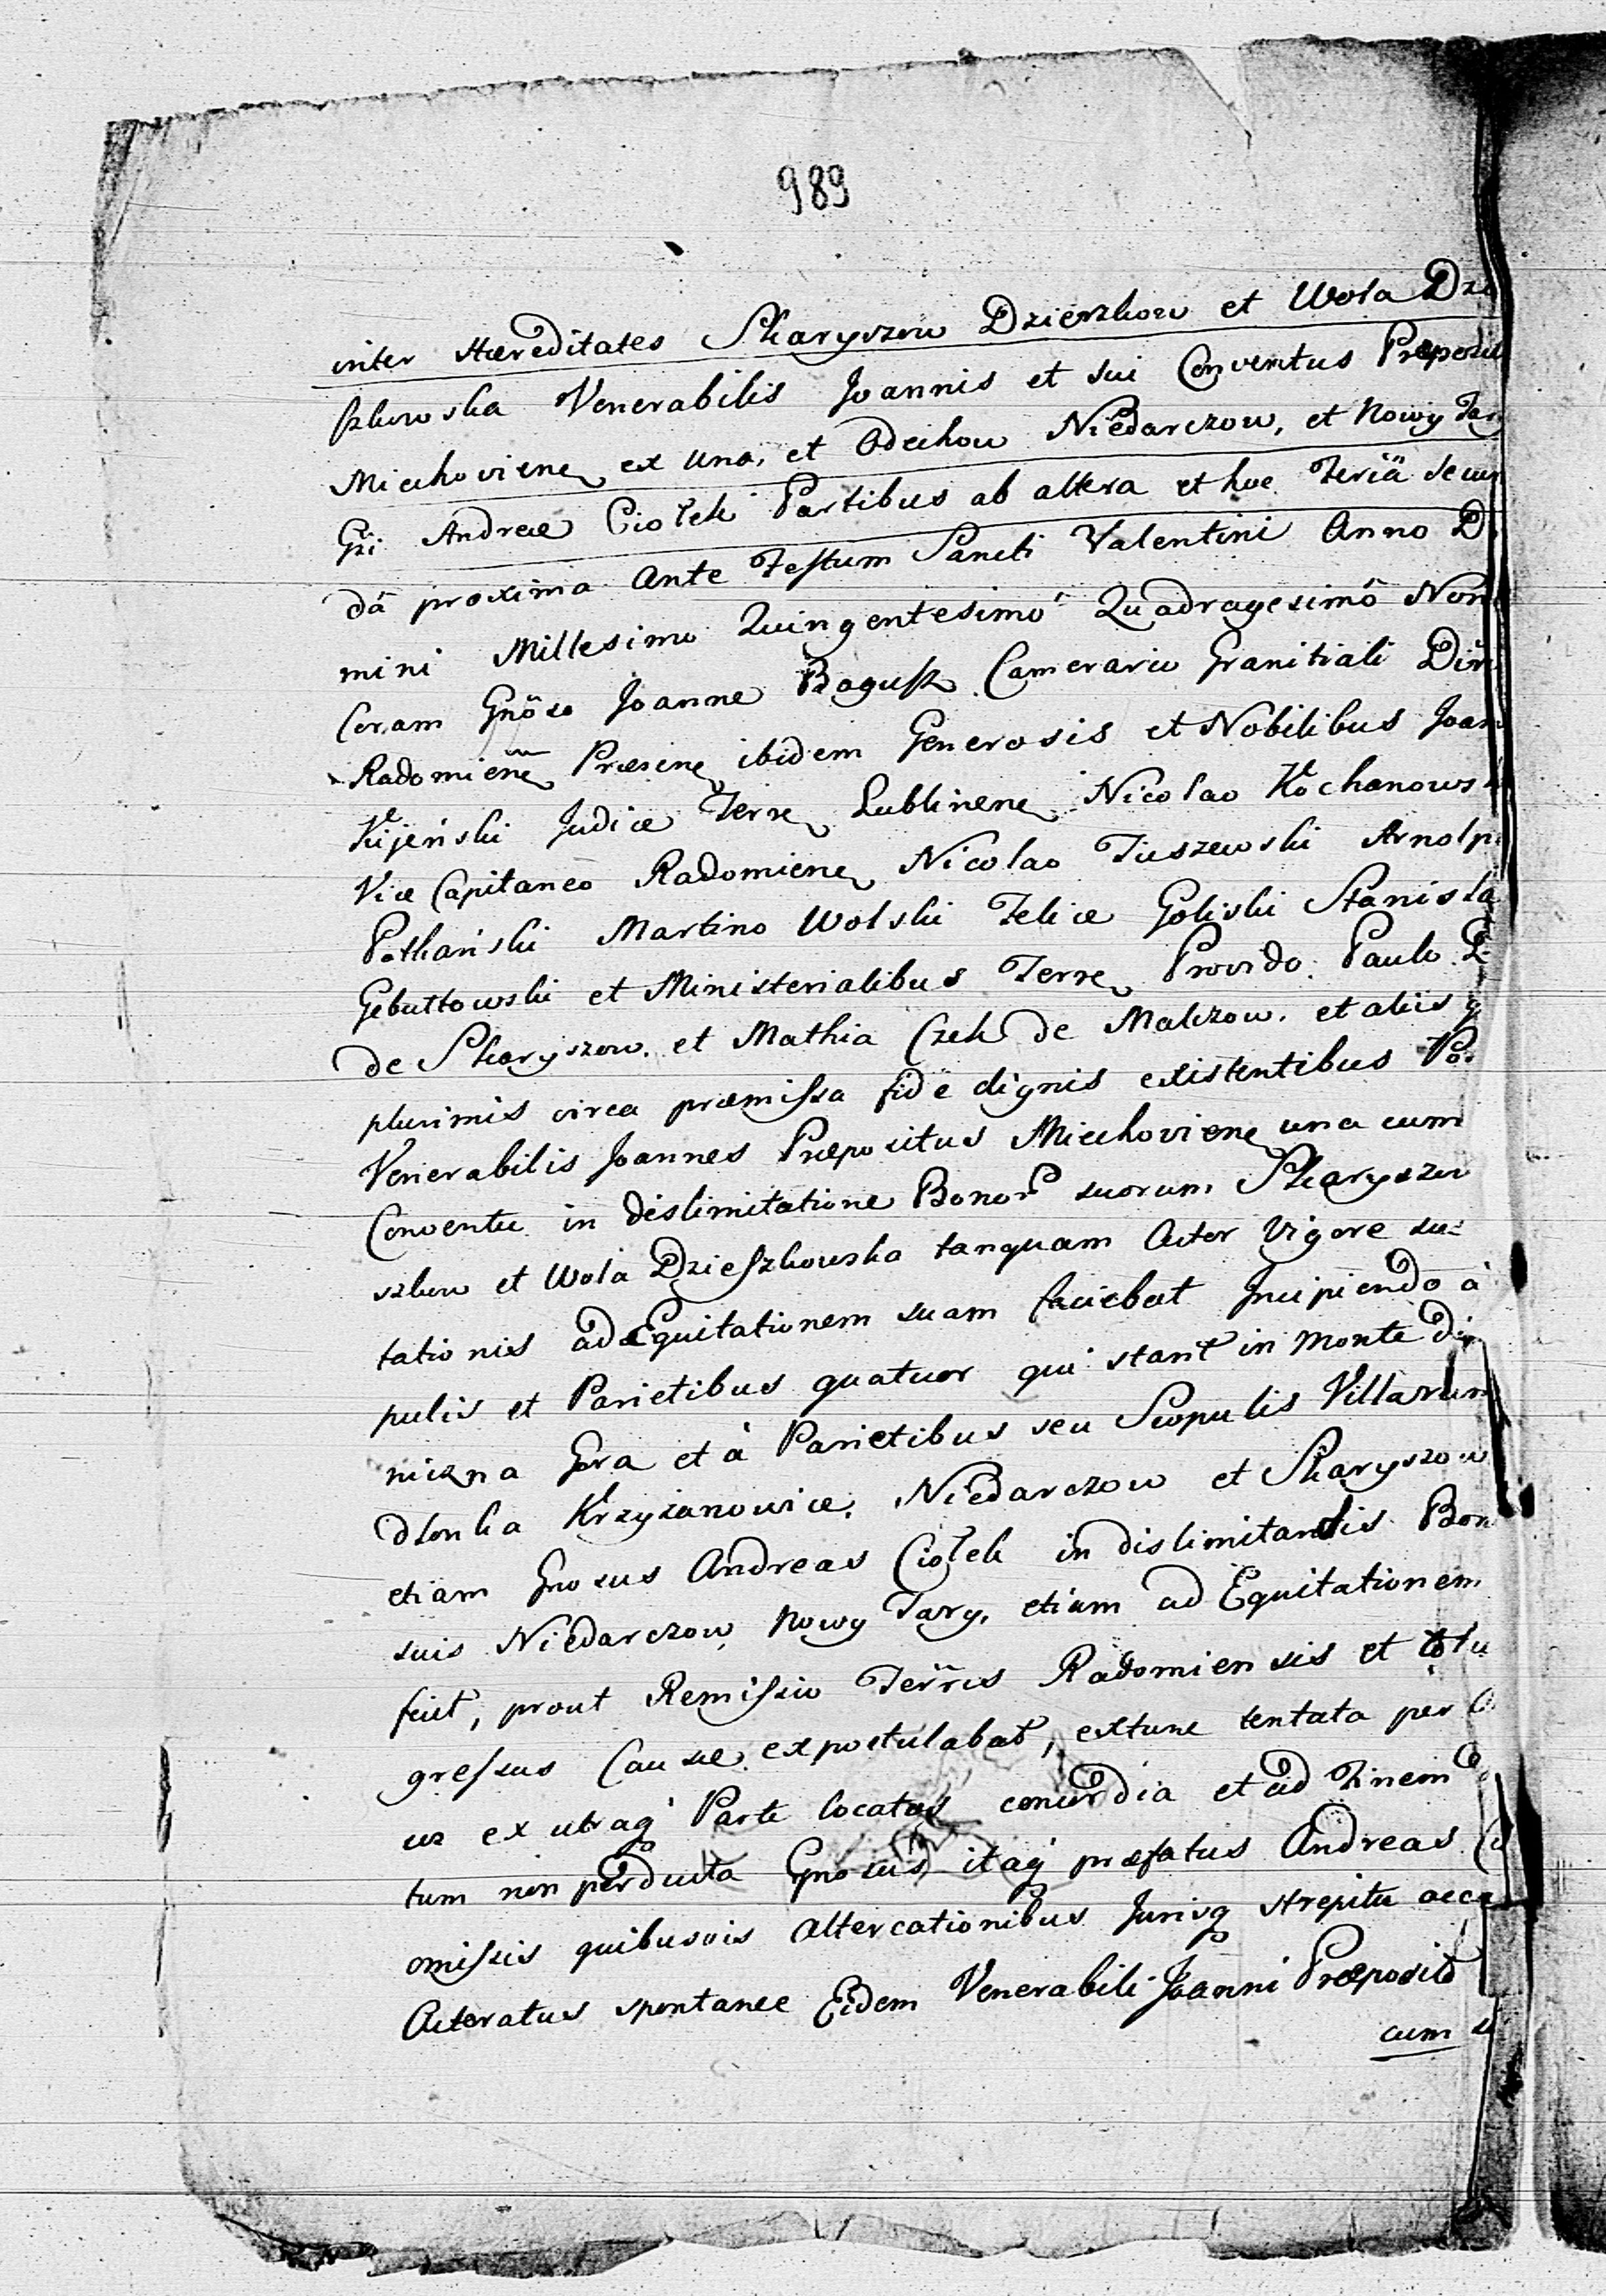 989
inter Hæreditates Skaryszow Dzierzkow et Wola Dzi
szkowska Venerabilis Joannis et sui Conventus Præposit
Miechoviene ex una, et Odechow Niedarczow, et Nowy Tar
Gsi Andreæ Ciołek Partibus ab altera et hoc Feriâ secun
dâ proxima Ante Festum Sancti Valentini Anno D
mini Millesimo Quingentesimô Quadragesimô Non
Coram Gnôso Joanne Bogusz Camerario Granitiali Din
Radomiene Præsene ibidem Generosis et Nobilibus Joan
Kijeński Judice Terre Lublinene Nicolao Kochanows
Vice Capitaneo Radomiene Nicolao Tuszewski Arnolp
Potkański Martino Wolski Felice Goliski Stanisla
Gebułtowski et Ministerialibus Terre Provido Paulo
de Skaryszow. et Mathia Czek de Malczow. et aliis q
plurimis circa præmissa fide dignis existentibus
Venerabilis Joannes Præpositus Miechoviene una cum
Conventu in dislimitatione Bonor suorum Skaryszew
szkow et Wola Dzieszkowska tanquam Actor Vigore
tationis ad Equitationem suam faciebat Incipiendo à
pulis et Parietibus quatuor qui stant in Monte
nizna Gora et à Parietibus seu Scopulis Villarum
dlonka Krzyżanowice, Niedarczow et Skaryszow
etiam Gnosus Andreas Ciołek in dislimitandis Bon
suis Niedarczow Nowy Targ, etiam ad Equitationem
fecit, prout Remissio Terrris Radomiensis et totu
gressus Causæ expostulabat, extunc tentata per
us ex utraq Parte locatus concordia et ad Finem
tum non perducta Gnosus itaq præfatus Andreas
omissis quibusvis Altercationibus Jurisq strepitu
Actoratus spontanee Eidem Venerabili Joanni Præposito
cum